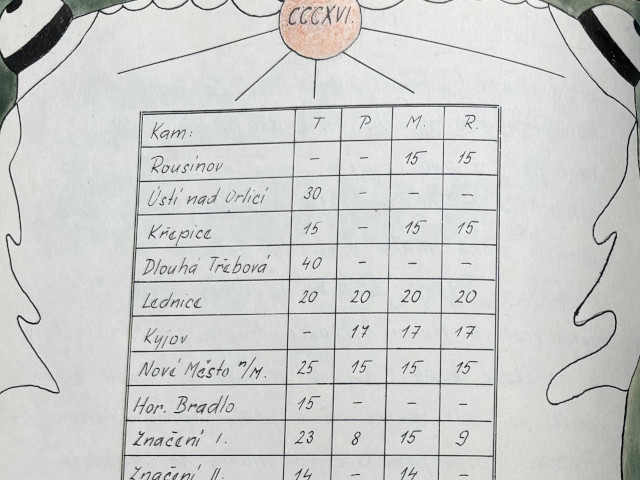 CCCXVI.
Kam: T. P. M. R.
Rousínov – – 15 15
Ústí nad Orlicí 30 – – –
Křepice 15 – 15 15
Dlouhá Třebová 40 – – –
Lednice 20 20 20 20
Kyjov – 17 17 17
Nové Město n/M. 25 15 15 15
Hor. Bradlo 15 – – –
Značení I. 23 8 15 9
Značení II. 14 – 14 –